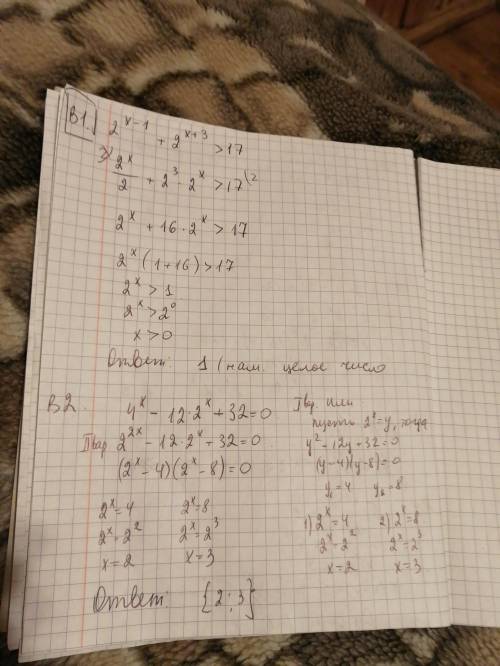 B1. 2^(x-1) + 2^(x+3) > 17
2^x/2 + 2^3 · 2^x > 17 |·2
2^x + 16 · 2^x > 17
2^x (1+16) > 17
2^x > 1
2^x > 2^0
x > 0
Ответ: 1 (наим. целое число
B2. 4^x - 12 · 2^x + 32 = 0
I вар 2^(2x) - 12 · 2^x + 32 = 0
(2^x - 4)(2^x - 8) = 0
2^x = 4 2^x = 8
2^x = 2^2 2^x = 2^3
x = 2 x = 3
Ответ: {2; 3}
II вар. или
пусть 2^x = y, тогда
y^2 - 12y + 32 = 0
(y-4)(y-8) = 0
y₁ = 4 y₂ = 8
1) 2^x = 4 2) 2^x = 8
2^x = 2^2 2^x = 2^3
x = 2 x = 3